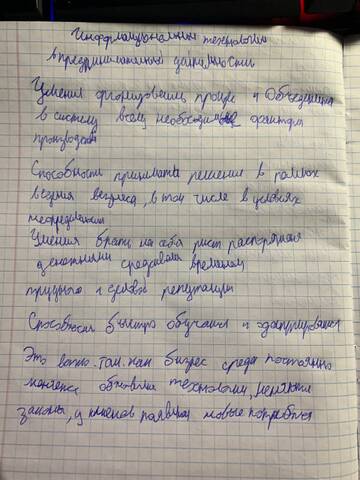 Информационные технологии
в предпринимательской деятельности
Умения организовать процес и Объединить
в систему всему необходимые факторы
производства
Способность принимать решение в рамках
ведения бизнеса, в том числе в условиях
неопределённости
Умения брать на себя риск распоряжения
денежными средствами временем
трудного и деловой репутации
Способность быстро обучаться и адаптироваться
Это важно. так как бизнес среда постоянно
меняется обновляя технологии, меняются
законы, у клиентов появляются новые потребности